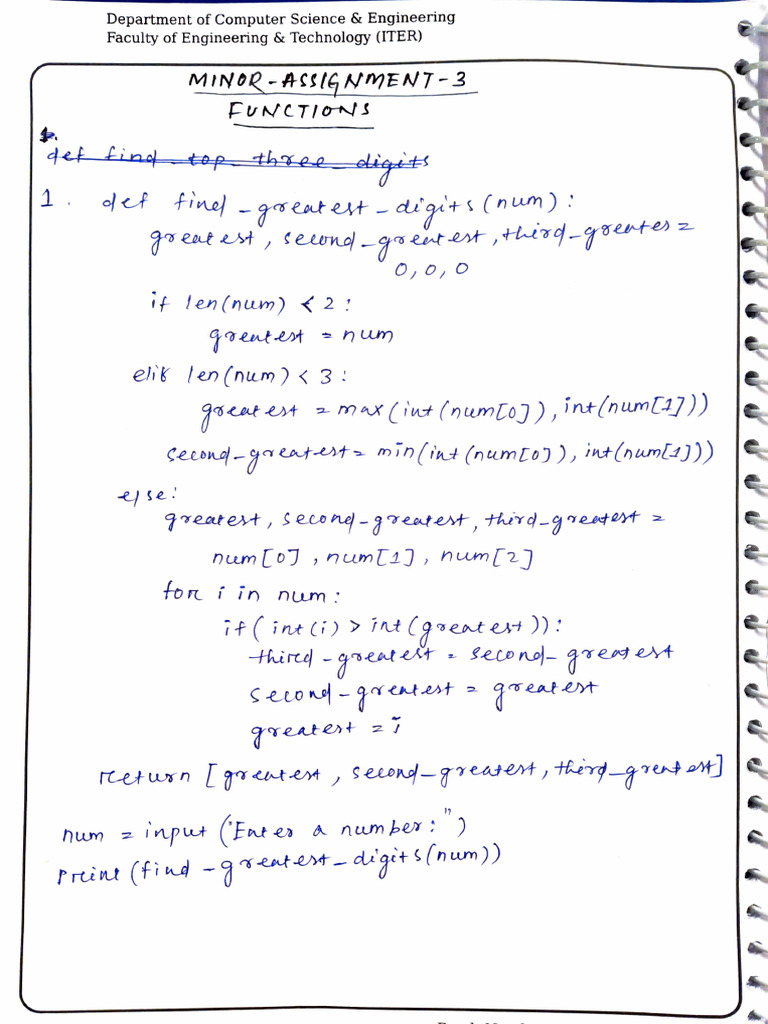 Department of Computer Science & Engineering
Faculty of Engineering & Technology (ITER)
MINOR-ASSIGNMENT-3
FUNCTIONS
1.
def find_top_three_digits
1. def find_greatest_digits(num):
greatest, second_greatest, third_greates =
0, 0, 0
if len(num) < 2:
greatest = num
elif len(num) < 3:
greatest = max(int(num[0]), int(num[1]))
second_greatest = min(int(num[0]), int(num[1]))
else:
greatest, second_greatest, third_greatest =
num[0], num[1], num[2]
for i in num:
if(int(i) > int(greatest)):
third_greatest = second_greatest
second_greatest = greatest
greatest = i
return [greatest, second_greatest, third_greatest]
num = input("Enter a number:")
print(find_greatest_digits(num))